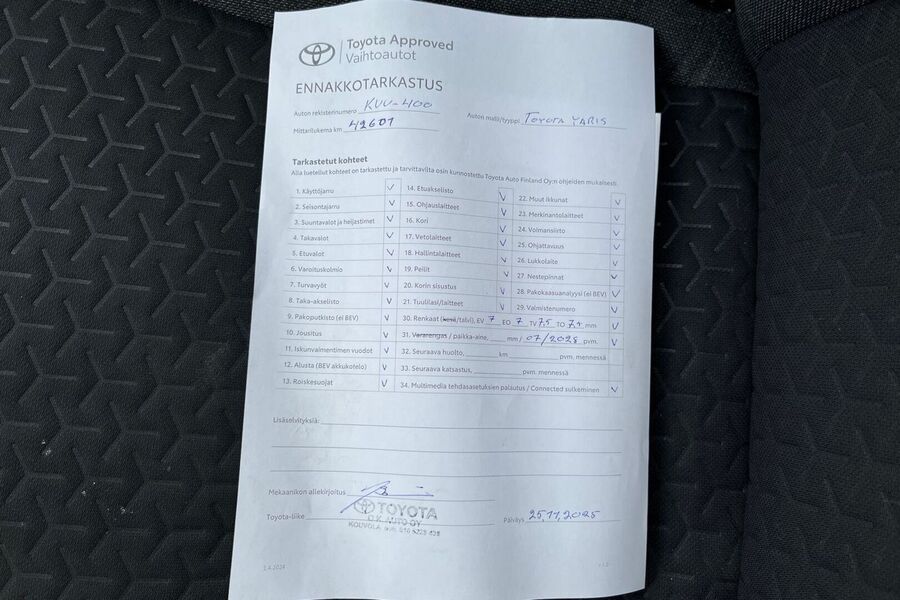 Toyota Approved
Vaihtoautot
ENNAKKOTARKASTUS
Auton rekisterinumero KVV-400
Auton malli/tyyppi TOYOTA YARIS
Mittarilukema km 42601
Tarkastetut kohteet
Alla luetellut kohteet on tarkastettu ja tarvittavilta osin kunnostettu Toyota Auto Finland Oy:n ohjeiden mukaisesti.
1. Käyttöjarru
2. Seisontajarru
3. Suuntavalot ja heijastimet
4. Takavalot
5. Etuvalot
6. Varoituskolmio
7. Turvavyöt
8. Taka-akselisto
9. Pakoputkisto (ei BEV)
10. Jousitus
11. Iskunvaimentimen vuodot
12. Alusta (BEV akkukotelo)
13. Roiskesuojat
14. Etuakselisto
15. Ohjauslaitteet
16. Kori
17. Vetolaitteet
18. Hallintalaitteet
19. Peilit
20. Korin sisustus
21. Tuulilasi/laitteet
22. Muut ikkunat
23. Merkinantolaitteet
24. Voimansiirto
25. Ohjattavuus
26. Lukkolaite
27. Nestepinnat
28. Pakokaasuanalyysi (ei BEV)
29. Valmistenumero
30. Renkaat (kesä/talvi), EV 7 EO 7 TV 7,5 TO 7,4 mm
31. Vararengas / paikka-aine, mm / 07/2028 pvm.
32. Seuraava huolto, km pvm. mennessä
33. Seuraava katsastus, pvm. mennessä
34. Multimedia tehdasasetuksien palautus / Connected sulkeminen
Lisäselvityksiä:
Mekaanikon allekirjoitus
Toyota-liike
TOYOTA
O.K. AUTO OY
KOUVOLA
Päiväys 25,11,2025